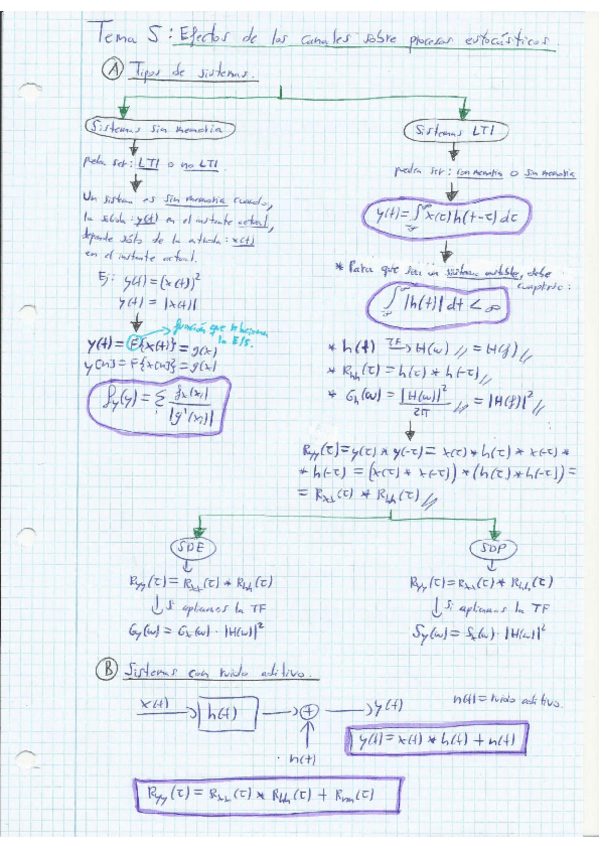 Tema 5: Efectos de los canales sobre procesos estocásticos
A Tipos de sistemas.
Sistemas sin memoria
pueden ser: LTI o no LTI.
Un sistema es sin memoria cuando,
la salida: y(t) en el instante actual,
depende sólo de la entrada: x(t)
en el instante actual.
Ej: y(t) = (x(t))²
y(t) = |x(t)|
función que relaciona
la E/S.
y(t) = F{x(t)} = g(x)
y[n] = F{x[n]} = g(x)
fy(y) = Σi fx(xi) / |g'(xi)|
Sistemas LTI
pueden ser: con memoria o sin memoria
y(t) = ∫ x(τ) h(t-τ) dτ
* Para que sea un sistema estable, debe
cumplirse:
∫ |h(t)| dt < ∞
* h(t) TF→ H(w) // = H(f) //
* Rhh(τ) = h(τ) * h(-τ) //
* Gh(w) = |H(w)|² / 2π // = |H(f)|² //
Ryy(τ) = y(τ) * y(-τ) = x(τ) * h(τ) * x(-τ) *
* h(-τ) = (x(τ) * x(-τ)) * (h(τ) * h(-τ)) =
= Rxx(τ) * Rhh(τ) //
SDE
Ryy(τ) = Rxx(τ) * Rhh(τ)
↓ Si aplicamos la TF
Gy(w) = Gx(w) · |H(w)|²
SDP
Ryy(τ) = Rxx(τ) * Rhh(τ)
↓ Si aplicamos la TF
Sy(w) = Sx(w) · |H(w)|²
B Sistemas con ruido aditivo.
x(t) → h(t) → + → y(t)
n(t)
n(t) = ruido aditivo.
y(t) = x(t) * h(t) + n(t)
Ryy(τ) = Rxx(τ) * Rhh(τ) + Rnn(τ)